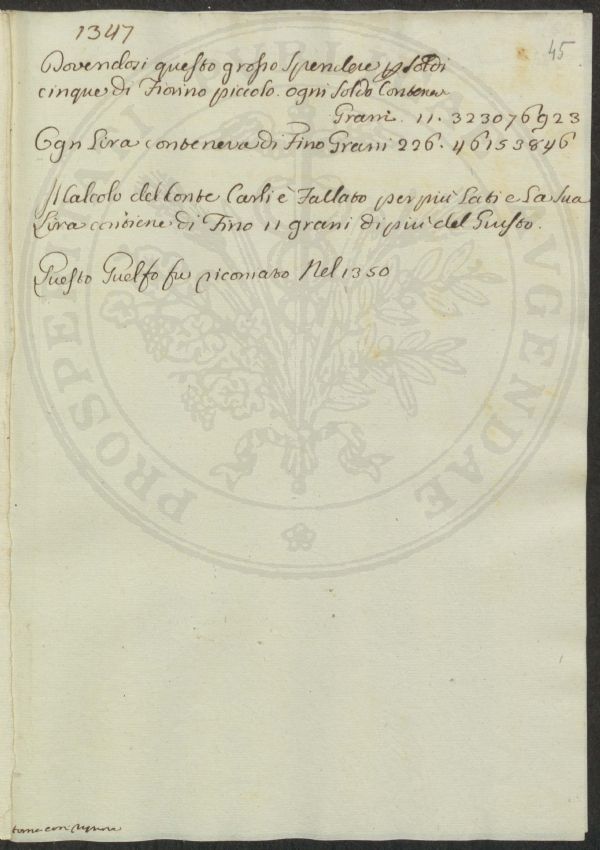 1347
45
Dovendosi questo grosso Spendere p Soldi
cinque di Fiorino piccolo. ogni Soldo Conteneva
Grani. 11. 323076923
Ogn Lira conteneva di Fino Grani 226. 46153846
Il Calcolo del Conte Carli è Fallato per più Lati e La sua
Lira contiene di Fino 11 grani di più del Giusto.
Questo Guelfo fu riconiato Nel 1350
PROSPERITATI PUBLICAE AUGENDAE